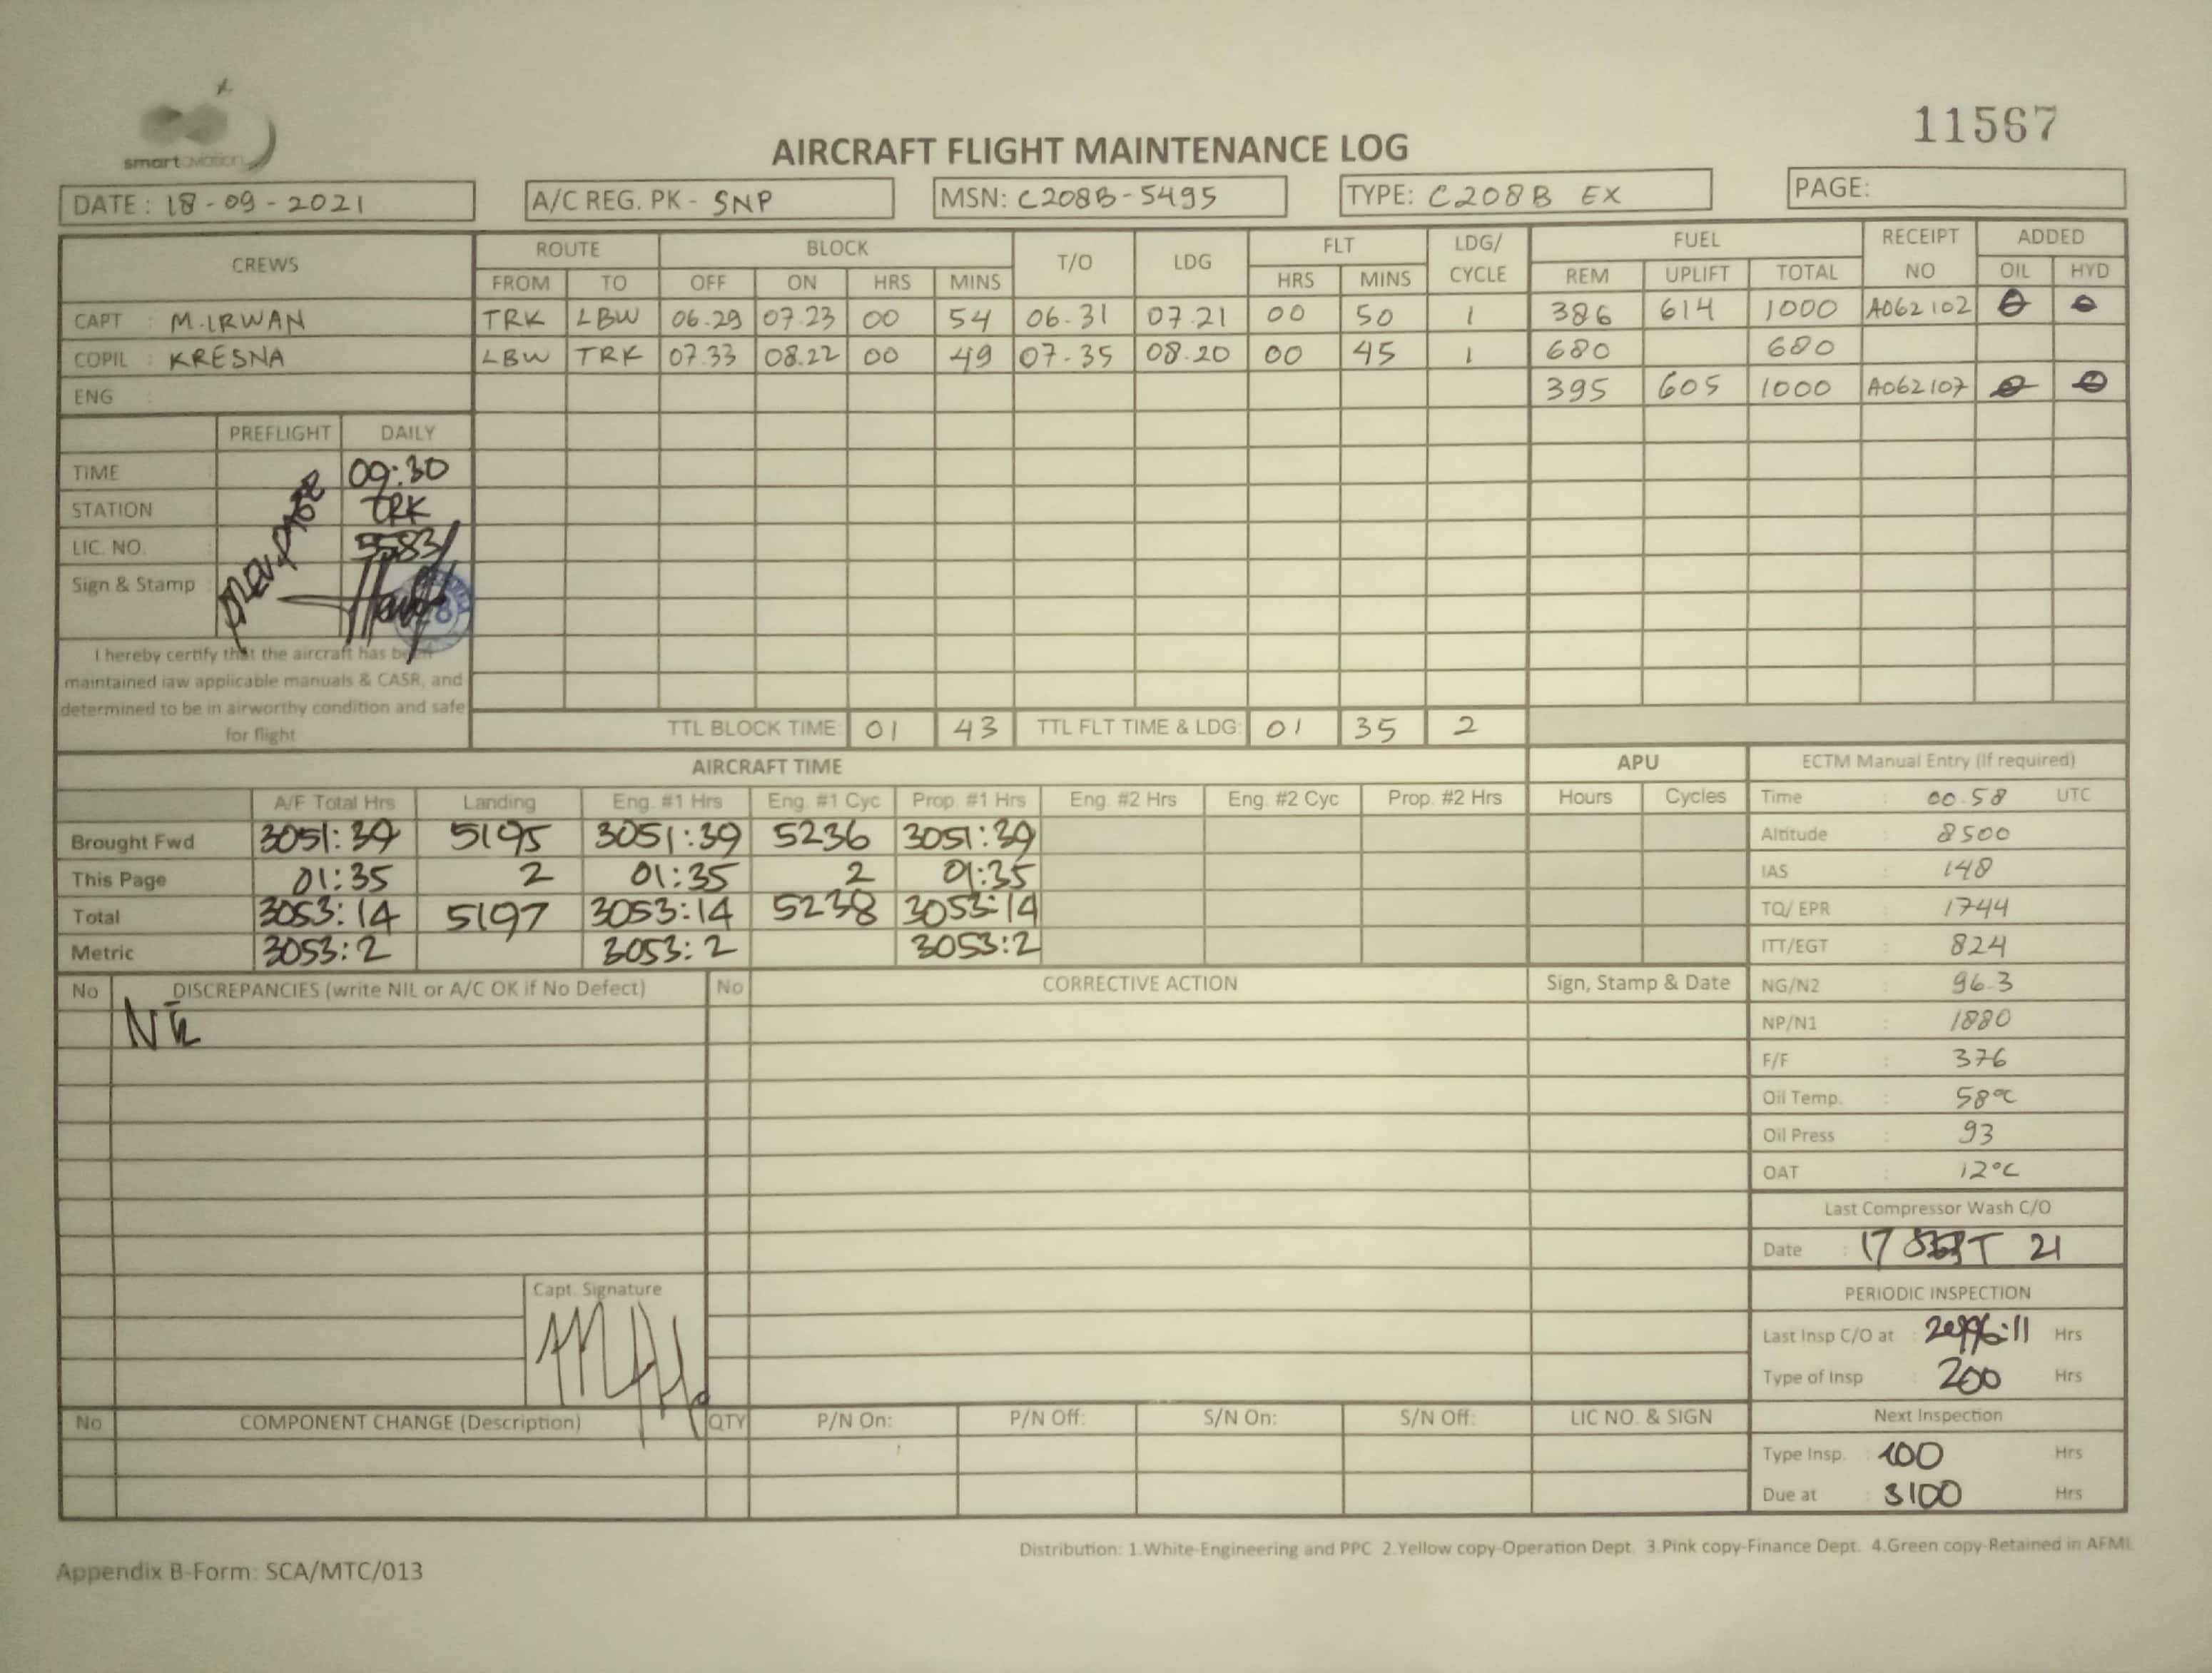 smart aviation
11567
AIRCRAFT FLIGHT MAINTENANCE LOG
DATE : 18-09-2021 A/C REG. PK - SNP MSN: C208B-5495 TYPE: C208B EX PAGE:
CREWS ROUTE BLOCK T/O LDG FLT LDG/ CYCLE FUEL RECEIPT NO ADDED
FROM TO OFF ON HRS MINS HRS MINS REM UPLIFT TOTAL OIL HYD
CAPT : M.IRWAN TRK LBW 06.29 07.23 00 54 06.31 07.21 00 50 1 386 614 1000 A062102 0 0
COPIL : KRESNA LBW TRK 07.33 08.22 00 49 07.35 08.20 00 45 1 680 680
ENG : 395 605 1000 A062107 0 0
PREFLIGHT DAILY
TIME : 09:30
STATION : TRK
LIC. NO. : 5583
Sign & Stamp :
I hereby certify that the aircraft has been
maintained iaw applicable manuals & CASR, and
determined to be in airworthy condition and safe
for flight
TTL BLOCK TIME: 01 43 TTL FLT TIME & LDG: 01 35 2
AIRCRAFT TIME APU
A/F Total Hrs Landing Eng. #1 Hrs Eng. #1 Cyc Prop. #1 Hrs Eng. #2 Hrs Eng. #2 Cyc Prop. #2 Hrs Hours Cycles
Brought Fwd 3051:39 5195 3051:39 5236 3051:39
This Page 01:35 2 01:35 2 01:35
Total 3053:14 5197 3053:14 5238 3053:14
Metric 3053:2 3053:2 3053:2
ECTM Manual Entry (If required)
Time : 00.58 UTC
Altitude : 8500
IAS : 148
TQ/ EPR : 1744
ITT/EGT : 824
NG/N2 : 96.3
NP/N1 : 1880
F/F : 376
Oil Temp. : 58°C
Oil Press : 93
OAT : 12°C
Last Compressor Wash C/O
Date : 17 SEPT 21
PERIODIC INSPECTION
Last Insp C/O at : 2996:11 Hrs
Type of Insp : 200 Hrs
Next Inspection
Type Insp. : 100 Hrs
Due at : 3100 Hrs
No DISCREPANCIES (write NIL or A/C OK if No Defect) No CORRECTIVE ACTION Sign, Stamp & Date
NIL
Capt. Signature
No COMPONENT CHANGE (Description) QTY P/N On: P/N Off: S/N On: S/N Off: LIC NO. & SIGN
Distribution: 1.White-Engineering and PPC 2.Yellow copy-Operation Dept. 3.Pink copy-Finance Dept. 4.Green copy-Retained in AFML
Appendix B-Form: SCA/MTC/013